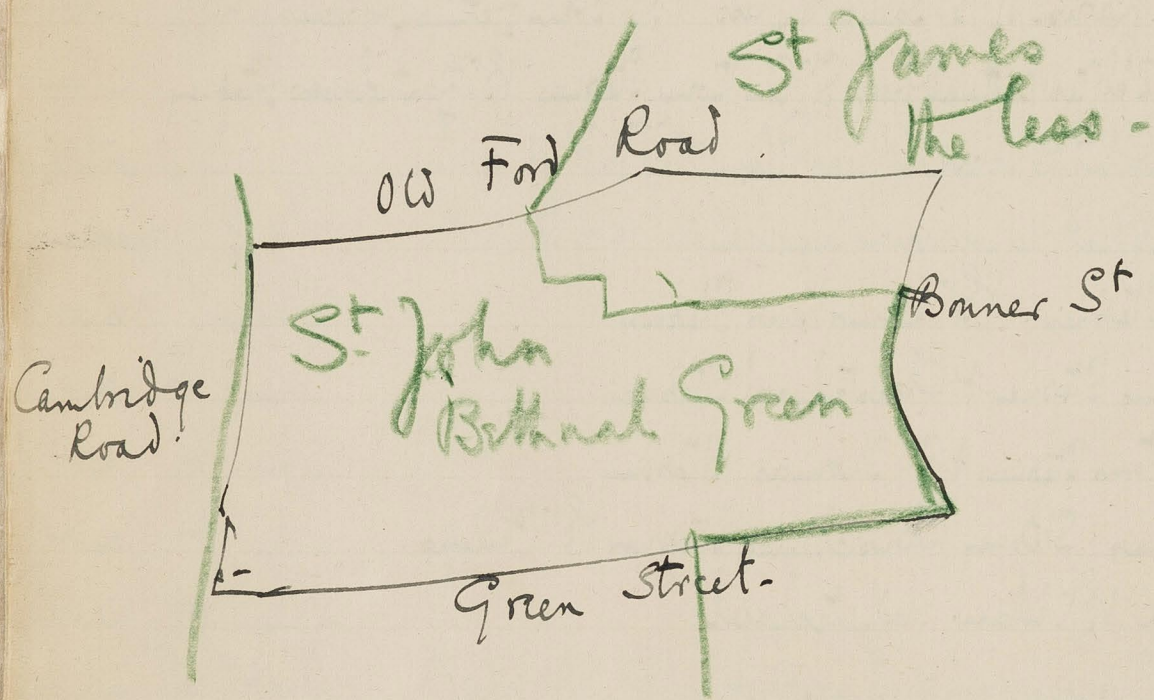 St James
the less -
Old Ford Road.
Bonner St
St. John
Bethnal Green
Cambridge
Road.
Green Street-